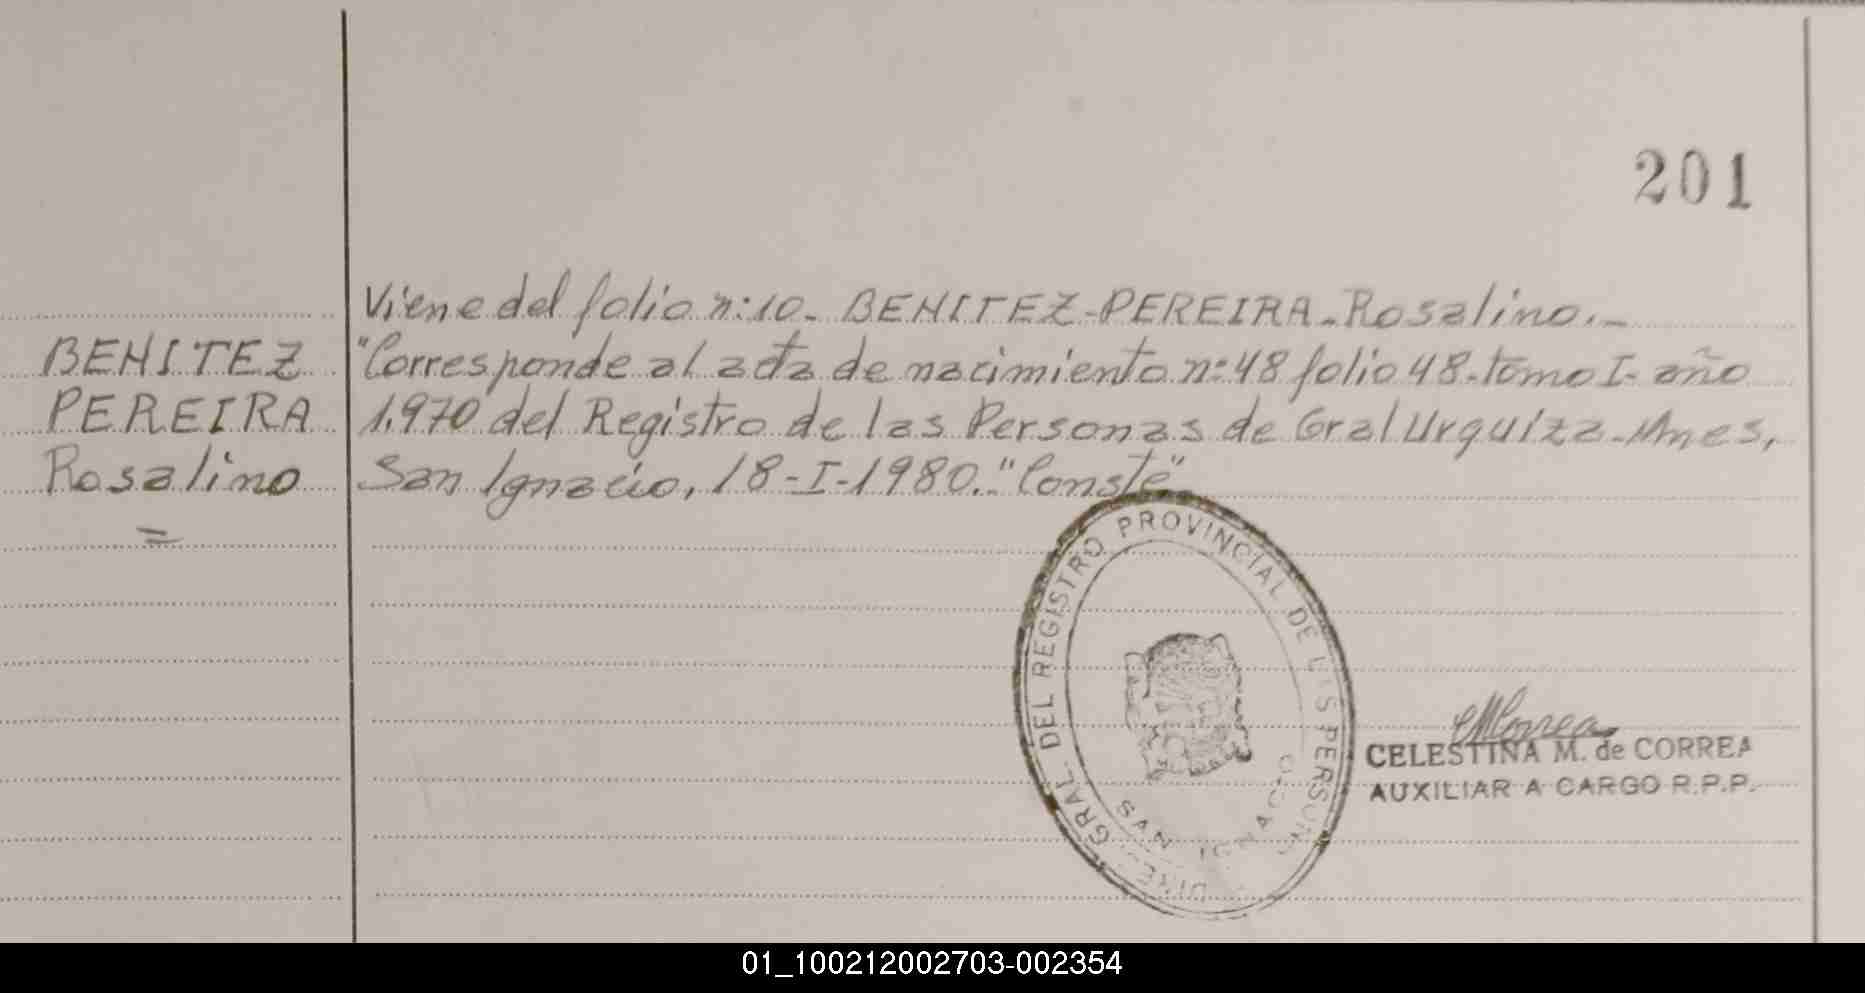 201
BENITEZ
PEREIRA
Rosalino
=
Viene del folio n:10- BENITEZ-PEREIRA-Rosalino.-
"Corresponde al acta de nacimiento n:48 folio 48-tomo I-año
1.970 del Registro de las Personas de Gral Urquiza-Mnes,
San Ignacio, 18-I-1980." Conste"
GRAL. DEL REGISTRO PROVINCIAL DE LAS PERSON
SAN IGNACIO
CELESTINA M. de CORREA
AUXILIAR A CARGO R.P.P.
01_100212002703-002354